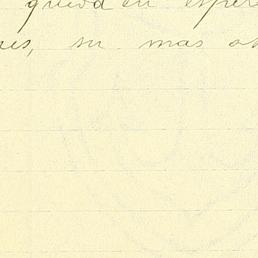 queda en esper
es, su mas a